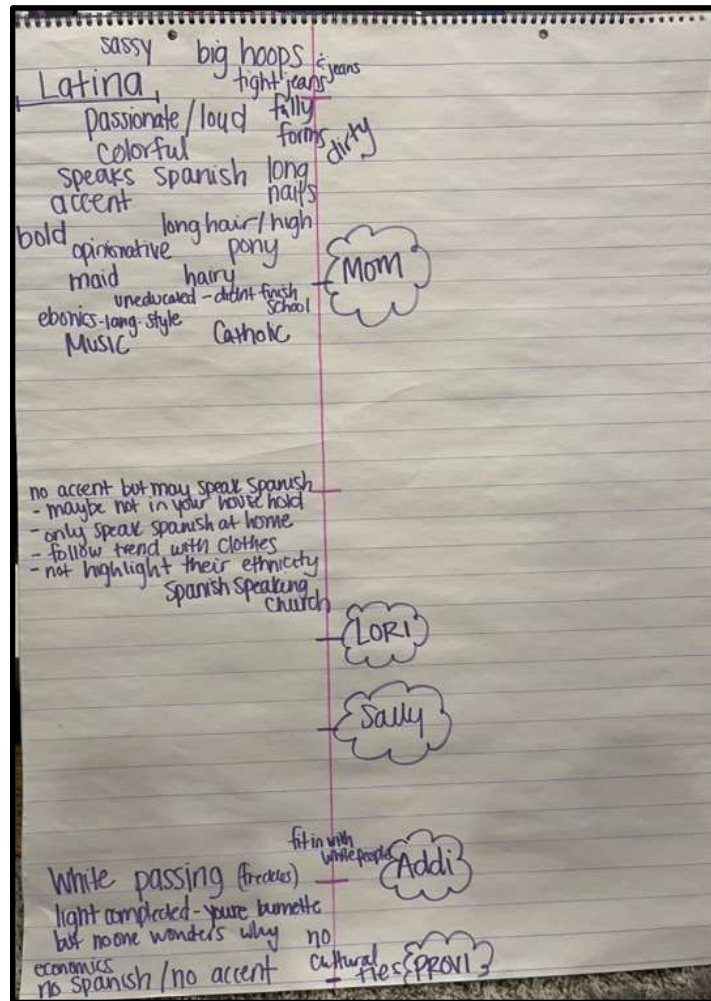 sassy big hoops &
tight jeans jeans
Latina
passionate/loud
forms dirty
colorful
speaks spanish long
accent nails
bold long hair/high
opinionative pony
maid hairy
Mom
uneducated - didnt finish
school
ebonics-lang-style
Music Catholic
no accent but may speak Spanish
- maybe not in your household
- only speak spanish at home
- follow trend with clothes
- not highlight their ethnicity
Spanish Speaking
church
LORI
Sally
fit in with
white people
Addi
White passing (freckles)
light complected - youre burnette
but no one wonders why no
economics cultural
no spanish/no accent ties
PROVI